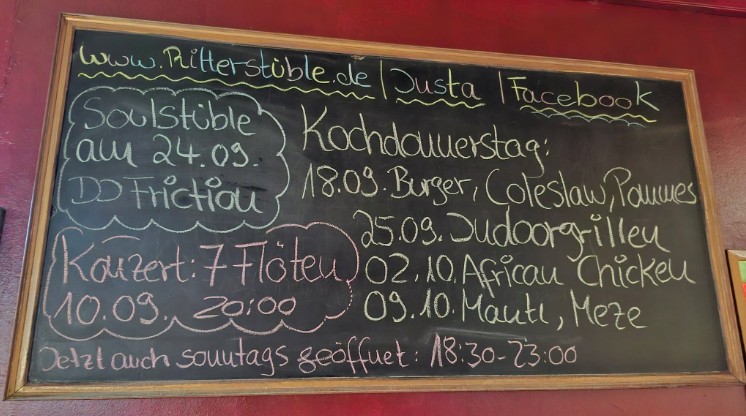 www.Ritterstüble.de | Insta | Facebook
Soulstüble
am 24.09.
DJ Friction
Konzert: 7 Flöten
10.09. 20:00
Kochdonnerstag:
18.09. Burger, Coleslaw, Pommes
25.09. Indoorgrillen
02.10. African Chicken
09.10. Mantı, Meze
Jetzt auch sonntags geöffnet: 18:30-23:00